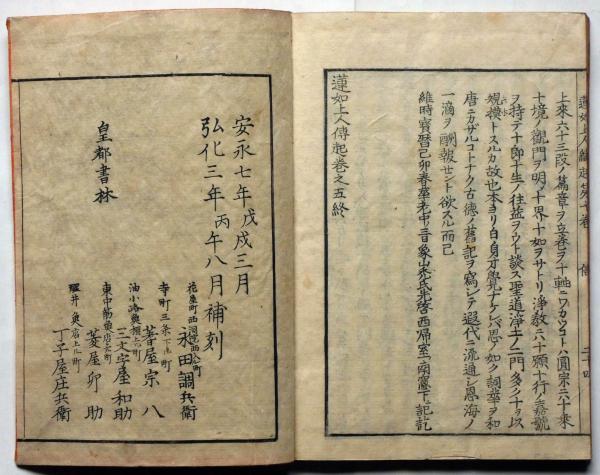 上來六十三改ノ篇章ヲ立巻ヲ十軸ニワカツコトハ圓宗ニ六十乘
十境ノ觀門ヲ明メ十界十如ヲサトリ淨教ニハ十願十行ノ嘉號
ヲ持テ十即十生ノ往益ヲウト談ス聖道淨土ノ二門多ク十ヲ以
規模トスルカ故也本ヨリ白身才覺ナケレバ思ノ如ク詞華ヲ和
唐ニカザルコトナク古德ノ舊記ヲ寫シテ遐代ニ流通シ恩海ノ
一滴ヲ酬報セント欲スル而已
維時寶暦己卯春 西歸室南窓下記訖
蓮如上人傳起巻之五終
安永七年戊戌三月
弘化三年丙午八月補刻
皇都書林
永田調兵衛
寺町三条下ル町
著屋宗八
油小路魚棚上町
三文字屋和助
東中筋魚店上町
菱屋卯助
醒井魚店下ル町
丁子屋庄兵衛